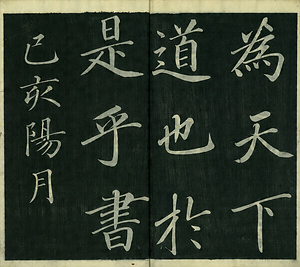 為天下
道也於
是乎書
已亥陽月